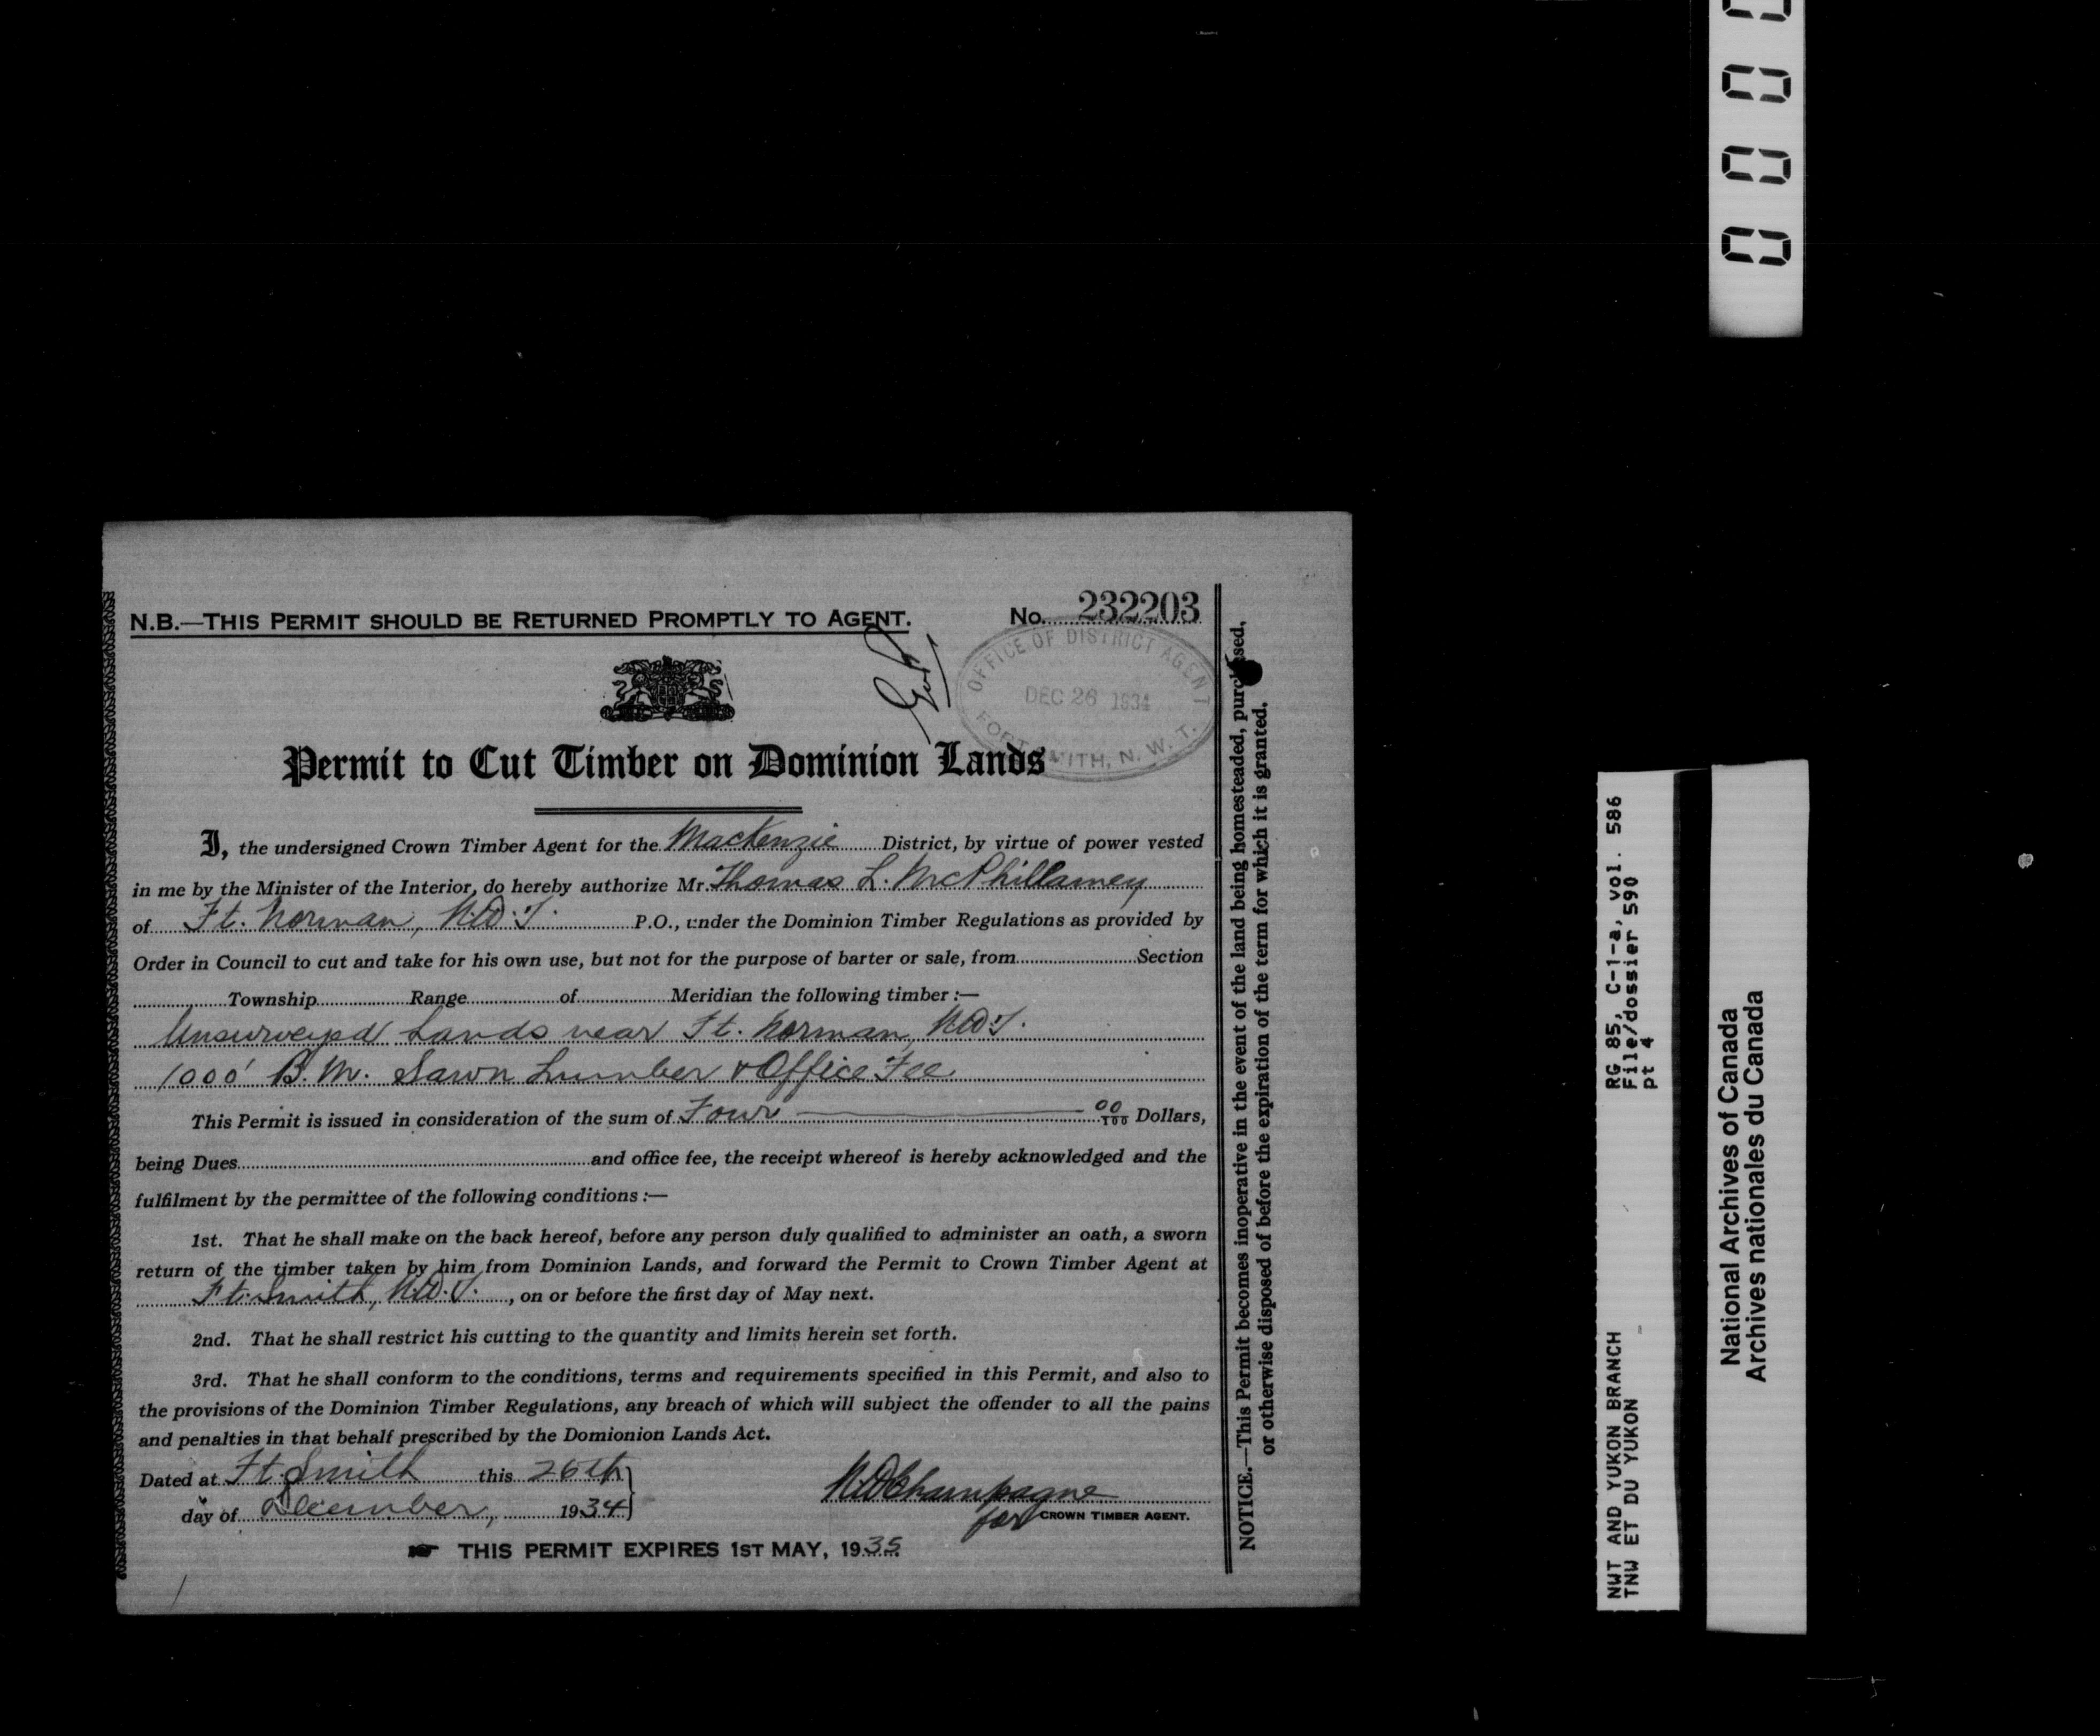 N.B.—THIS PERMIT SHOULD BE RETURNED PROMPTLY TO AGENT.
No. 232203
OFFICE OF DISTRICT AGENT
DEC 26 1934
FORT SMITH, N. W. T.
Permit to Cut Timber on Dominion Lands
I, the undersigned Crown Timber Agent for the Mackenzie District, by virtue of power vested
in me by the Minister of the Interior, do hereby authorize Mr. Thomas L. McPhillamey
of Ft. Norman, N.W.T. P.O., under the Dominion Timber Regulations as provided by
Order in Council to cut and take for his own use, but not for the purpose of barter or sale, from Section
Township Range of Meridian the following timber:—
Unsurveyed Lands near Ft. Norman, N.W.T.
1000' B.M. Sawn Lumber & Office Fee
This Permit is issued in consideration of the sum of Four 00/100 Dollars,
being Dues and office fee, the receipt whereof is hereby acknowledged and the
fulfilment by the permittee of the following conditions:—
1st. That he shall make on the back hereof, before any person duly qualified to administer an oath, a sworn
return of the timber taken by him from Dominion Lands, and forward the Permit to Crown Timber Agent at
Ft. Smith, N.W.T., on or before the first day of May next.
2nd. That he shall restrict his cutting to the quantity and limits herein set forth.
3rd. That he shall conform to the conditions, terms and requirements specified in this Permit, and also to
the provisions of the Dominion Timber Regulations, any breach of which will subject the offender to all the pains
and penalties in that behalf prescribed by the Domionion Lands Act.
Dated at Ft. Smith this 26th
day of December, 1934
N.D. Champagne
for CROWN TIMBER AGENT.
THIS PERMIT EXPIRES 1ST MAY, 1935
NOTICE.—This Permit becomes inoperative in the event of the land being homesteaded, purchased,
or otherwise disposed of before the expiration of the term for which it is granted.
NWT AND YUKON BRANCH RG 85, C-1-a, vol. 586
TNW ET DU YUKON File/dossier 590
pt 4
National Archives of Canada
Archives nationales du Canada
0 0 0 0